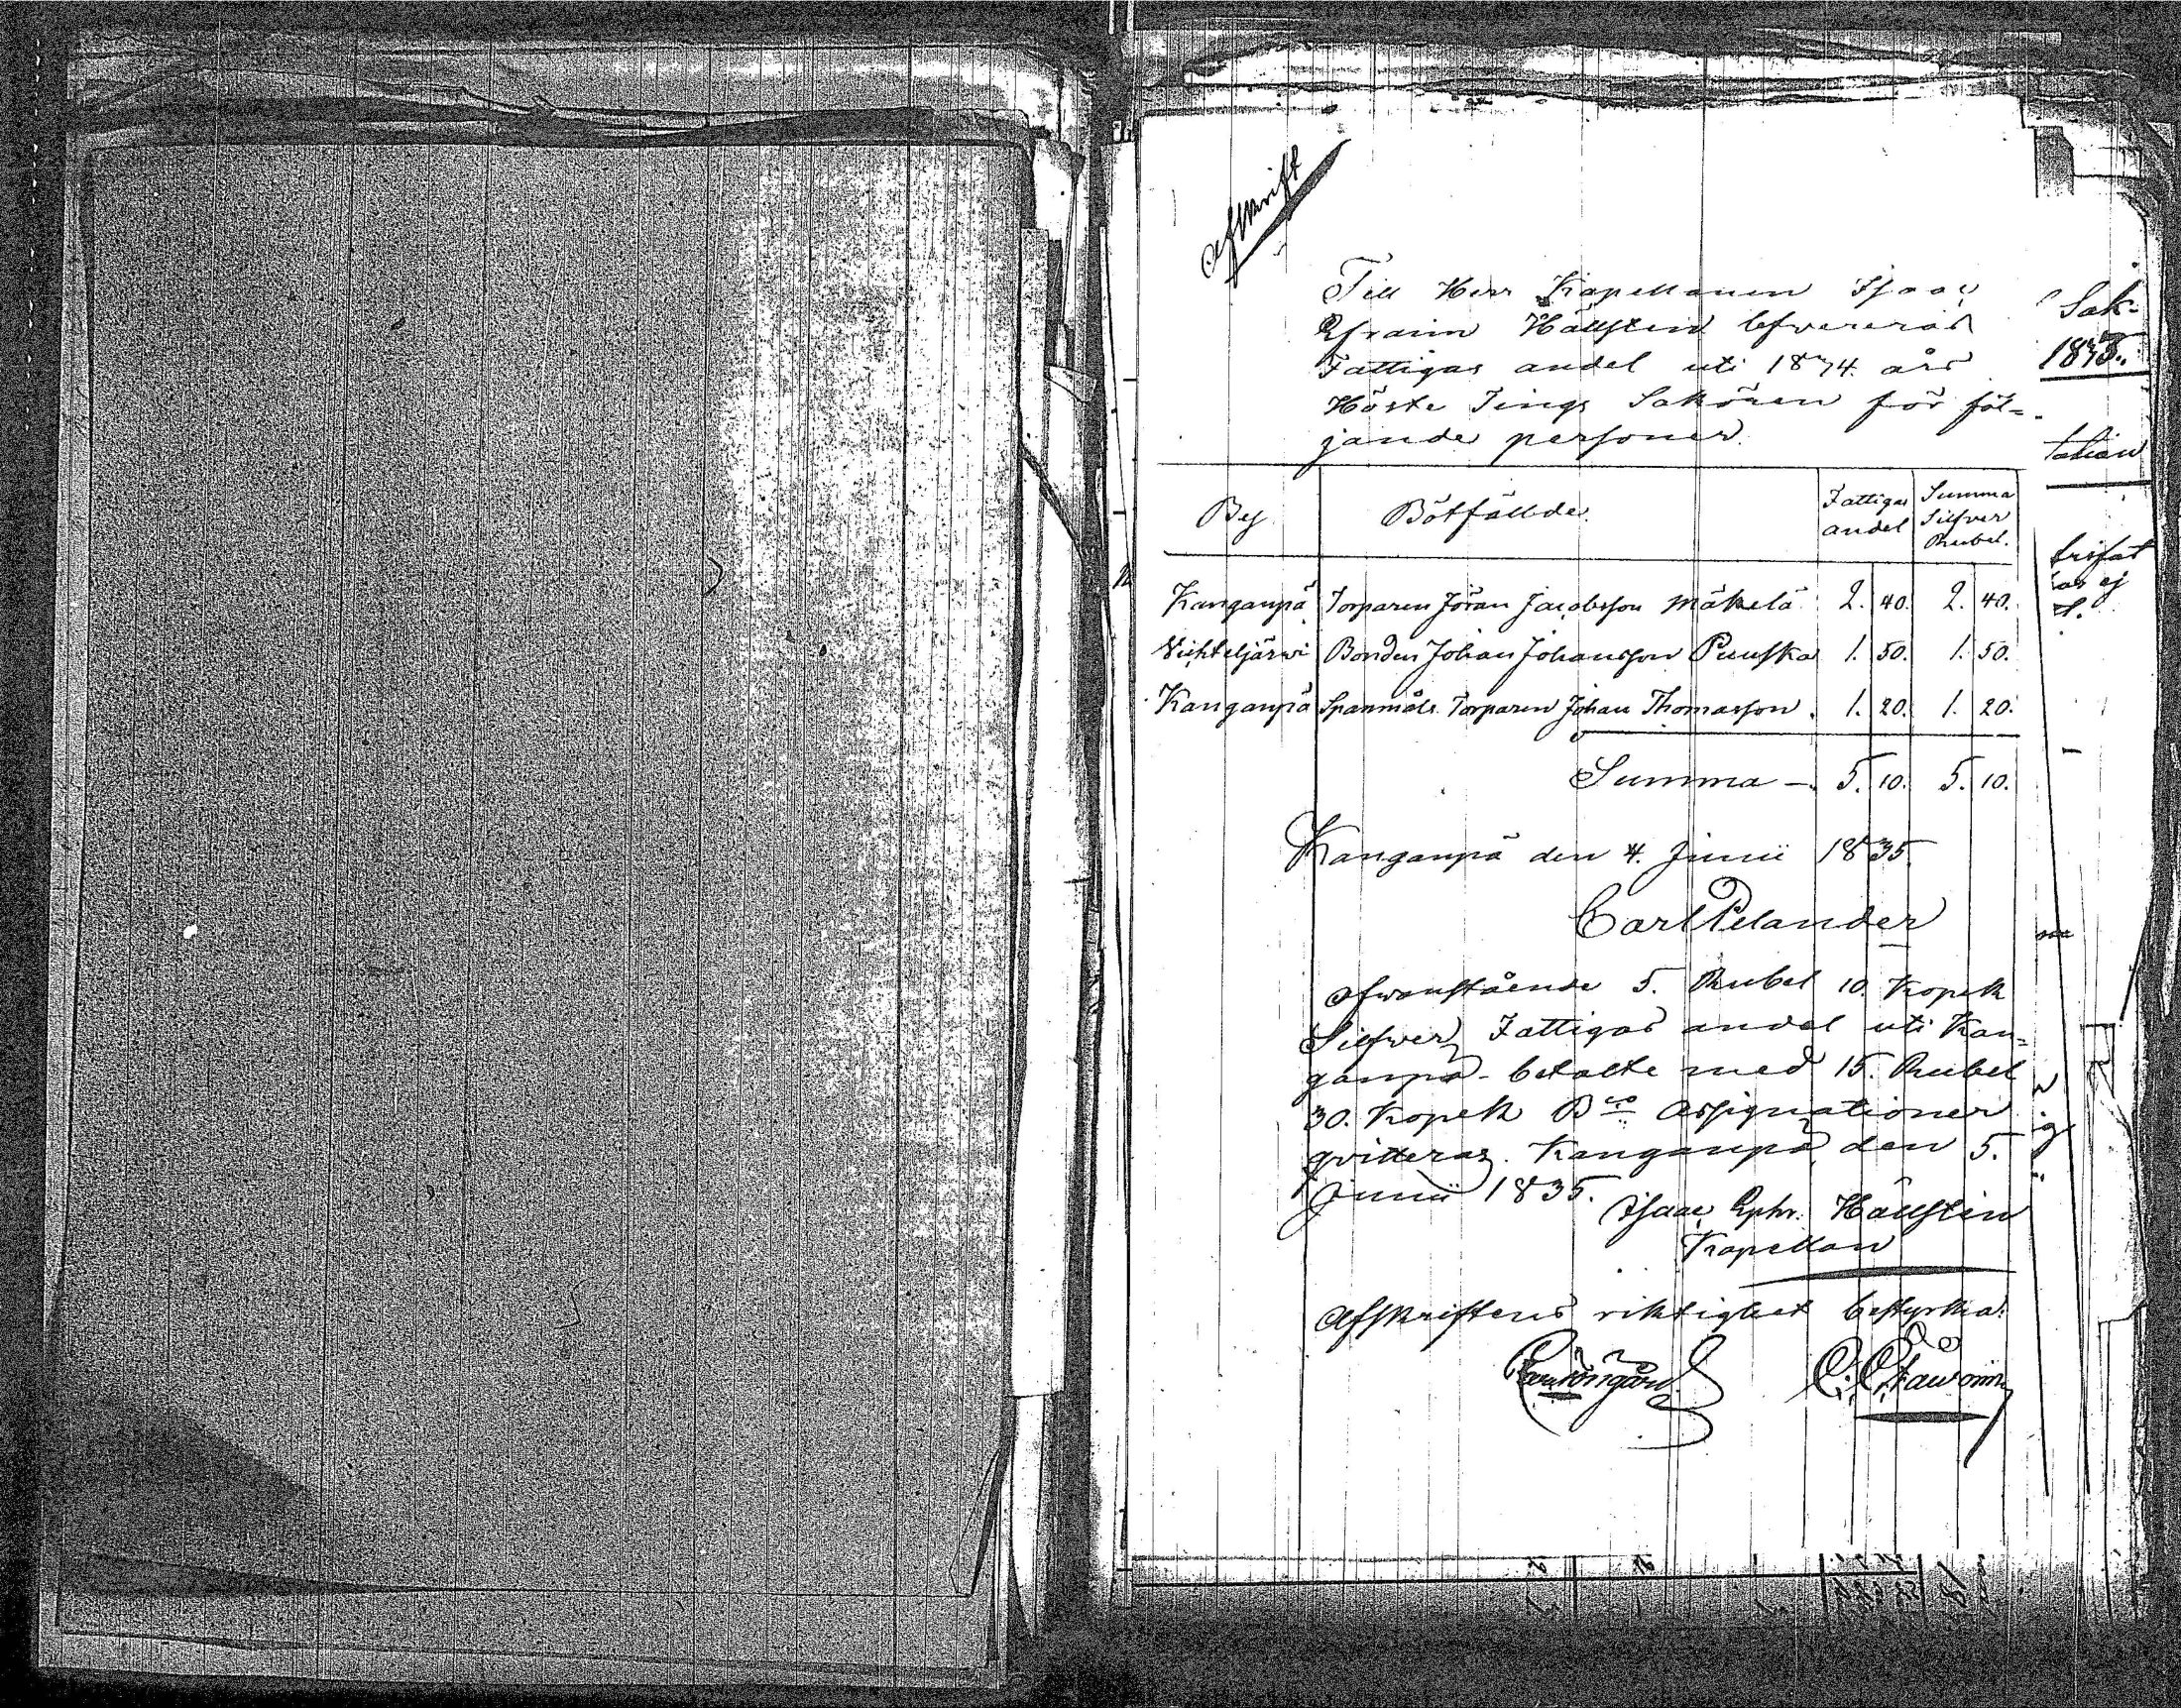 Afskrift
Till Herr Kapellanen Isaac
Efraim Hällsten lefvereras
Fattigas andel uti 1834 års
Höste Tings Sakören för föl=
jande personer.
By Bötfällde. Fattigas andel Summa Silfver Rubel.
Kanganpä Torparen Jöran Jacobsson Mäkelä 2. 40. 2. 40.
Vichteljärwi Bonden Johan Johansson Puuska 1. 50. 1. 50.
Kanganpä Spanmåls Torparen Johan Thomasson. 1. 20. 1. 20.
Summa —. 5. 10. 5. 10.
Kanganpä den 4. Junii 1835.
Carl Pelander
Ofwanstående 5. Rubel 10. Kopek
Silfver, Fattigas andel uti Kan=
ganpä - betalte med 15. Rubel
30. Kopek Bco Assignationer
qvitteras. Kanganpä den 5.
Junii 1835.
Isaac Ephr. Hällsten
Kapellan
Afskriftens riktighet bestyrka:
Sak=
1835.